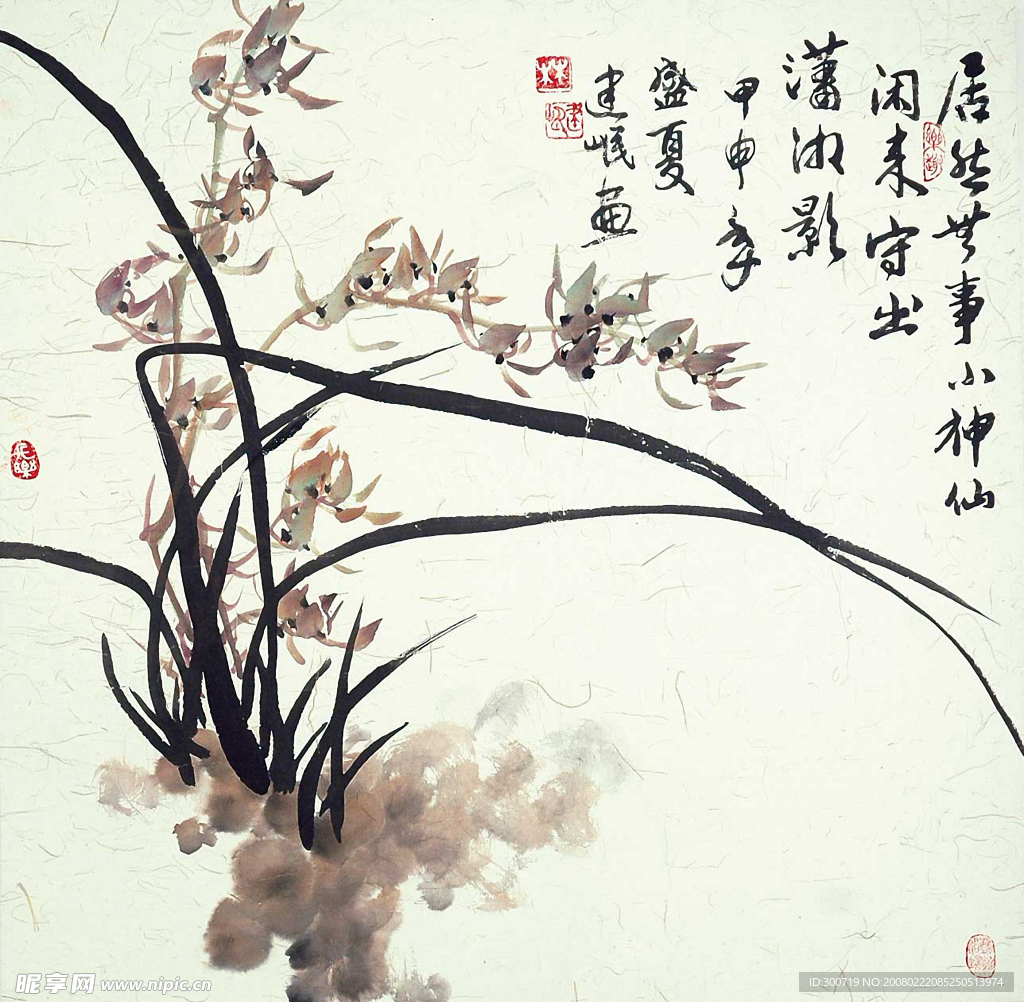 居然无事小神仙
闲来守出
潇湘影
甲申年
盛夏
建岷画
昵享网 www.nipic.cn
ID:300719 NO:20080222085250513974